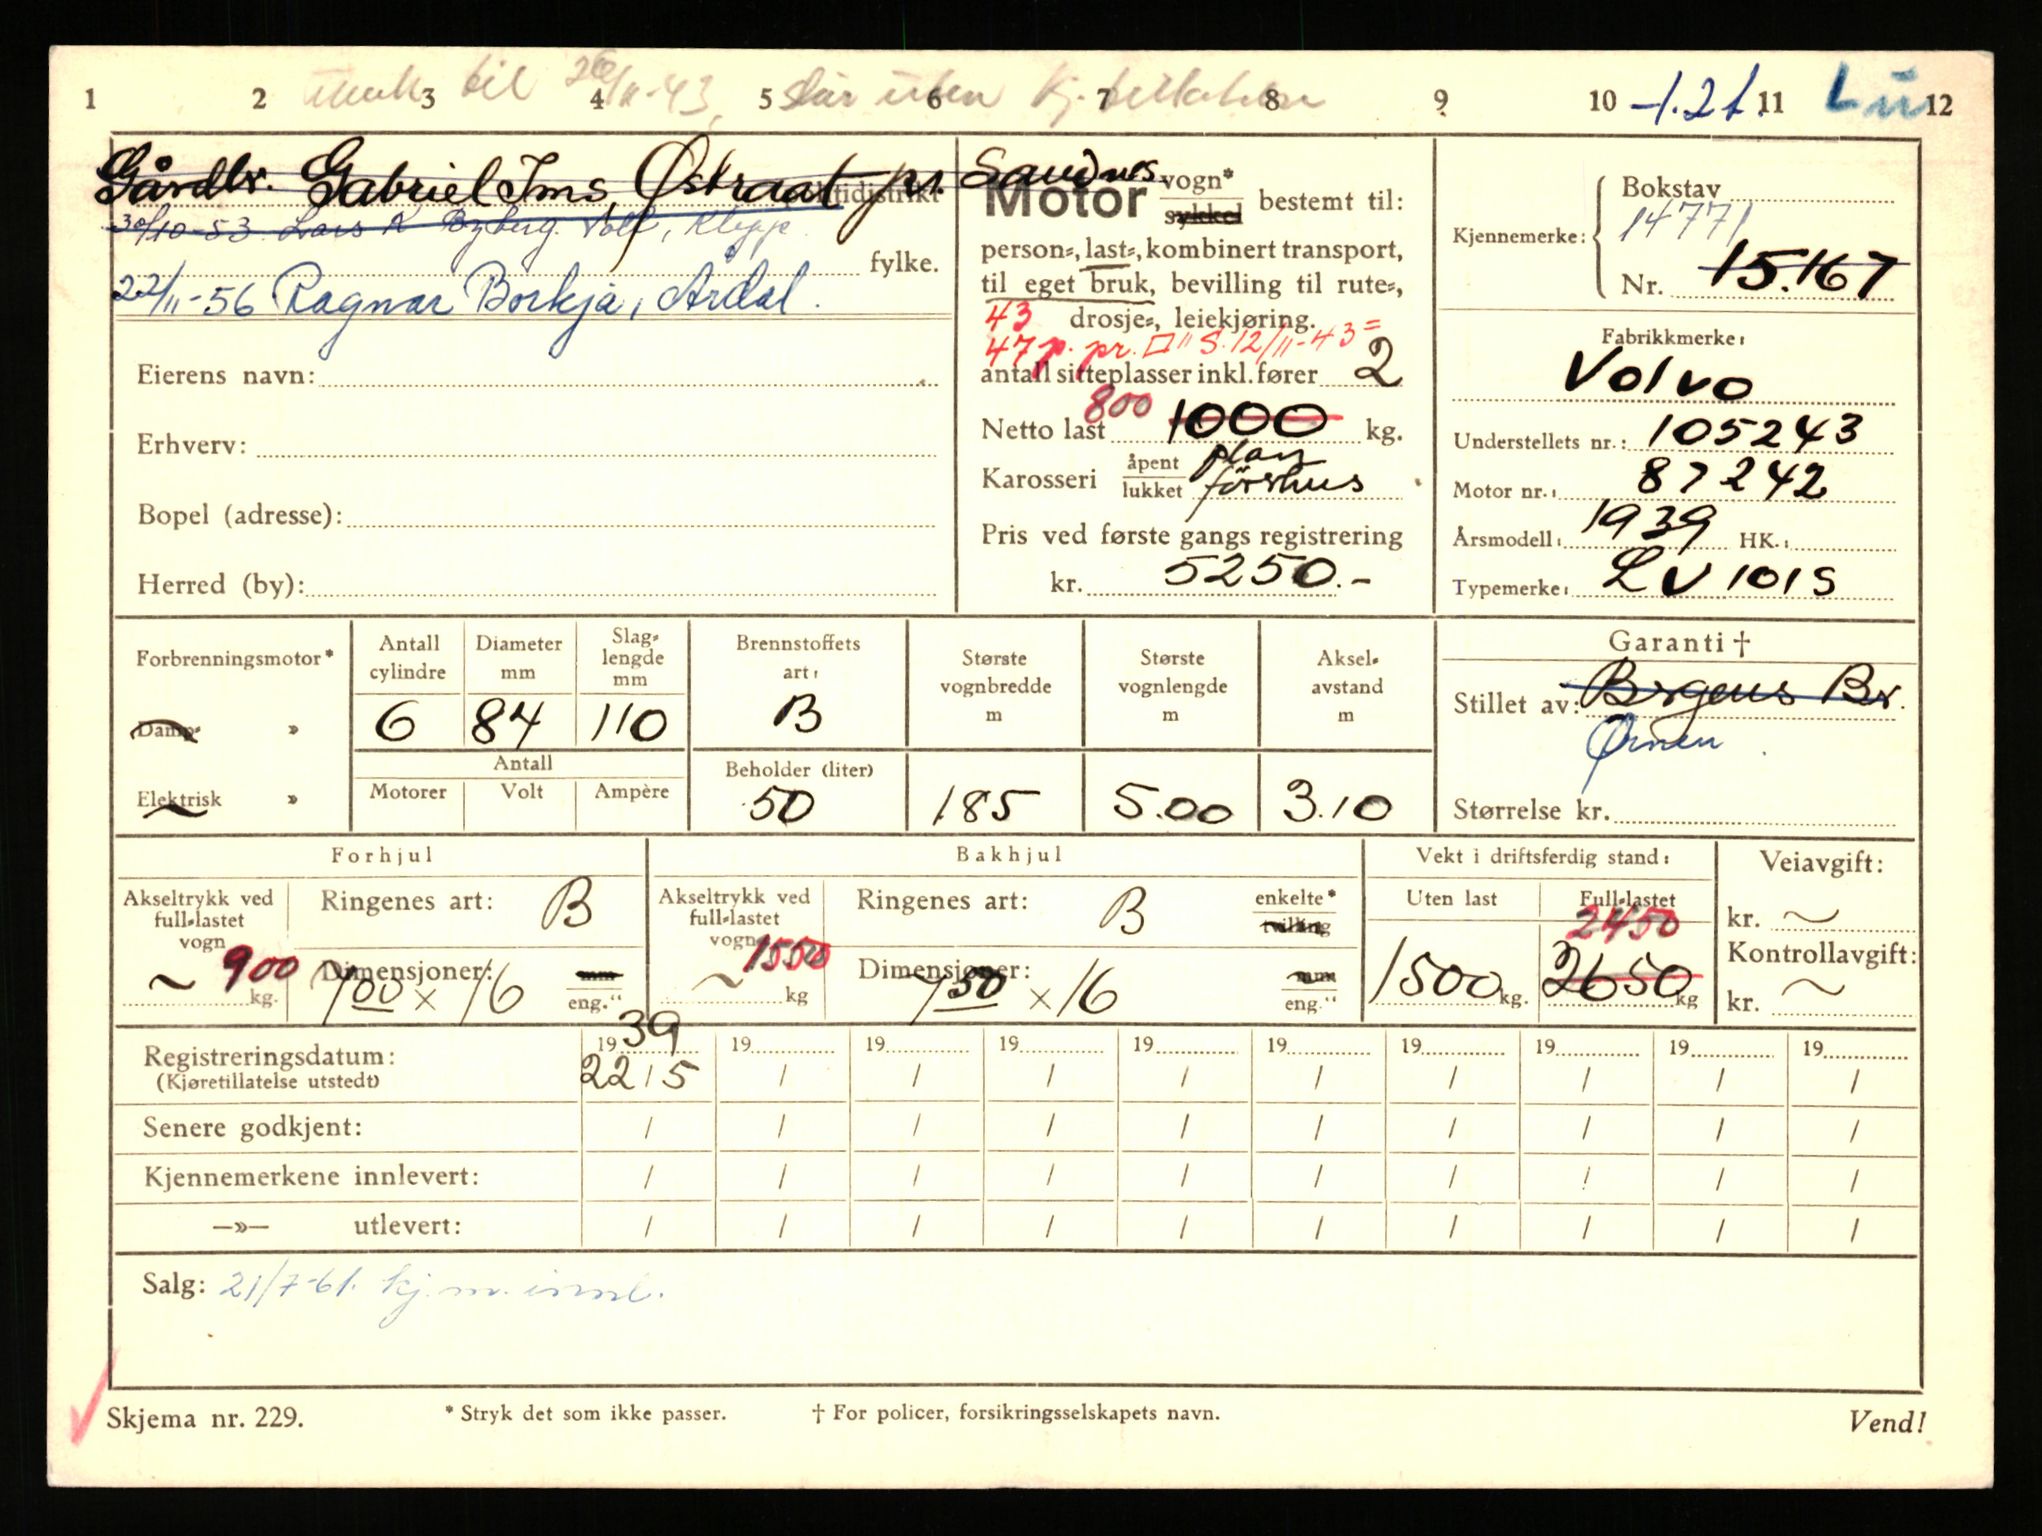 1 2 3 4 5 6 7 8 9 10 11 12
til 26/11-43, uten
-1.21. Lu
Gårdbr. Gabriel Ims, Østraat pr. Sandnes.
politidistrikt
30/10-53 Lars K Byberg Voll, Klepp.
fylke.
22/11-56 Ragnar Borkja, Årdal.
Eierens navn:
Erhverv:
Bopel (adresse):
Herred (by):
Motor vogn* sykkel bestemt til:
person-, last-, kombinert transport,
til eget bruk, bevilling til rute-,
43 drosje-, leiekjøring.
47 p. pr. S. 12/11-43 =
antall sitteplasser inkl. fører 2
800
Netto last 1000 kg.
Karosseri åpent lukket plan förrhus
Pris ved første gangs registrering
kr. 5250.-
Bokstav
14771
Kjennemerke:
Nr. 15.167
Fabrikkmerke:
Volvo
Understellets nr.: 105243
Motor nr.: 87242
Årsmodell: 1939 HK.:
Typemerke: LV 101S
Forbrenningsmotor*
Damp- »
Elektrisk »
Antall cylindre 6
Diameter mm 84
Slaglengde mm 110
Antall
Motorer Volt Ampère
Brennstoffets art: B
Beholder (liter) 50
Største vognbredde m 185
Største vognlengde m 5.00
Akselavstand m 3.10
Garanti †
Stillet av: Bergens Br.
Ørnen
Størrelse kr.
Forhjul
Akseltrykk ved full-lastet vogn 900 kg.
Ringenes art: B
Dimensjoner: 7.00 x 16 mm eng."
Bakhjul
Akseltrykk ved full-lastet vogn 1550 kg
Ringenes art: B enkelte* tvilling
Dimensjoner: 7.50 x 16 mm eng."
Vekt i driftsferdig stand:
Uten last 1500 kg.
Full-lastet 2450
2650 kg
Veiavgift:
kr. ~
Kontrollavgift:
kr. ~
Registreringsdatum: 1939 19 19 19 19 19 19 19 19 19
(Kjøretillatelse utstedt) 22/5 / / / / / / / / /
Senere godkjent: / / / / / / / / / /
Kjennemerkene innlevert: / / / / / / / / / /
—»— utlevert: / / / / / / / / / /
Salg: 21/7-61. kj.m. innl.
Skjema nr. 229.
* Stryk det som ikke passer.
† For policer, forsikringsselskapets navn.
Vend!